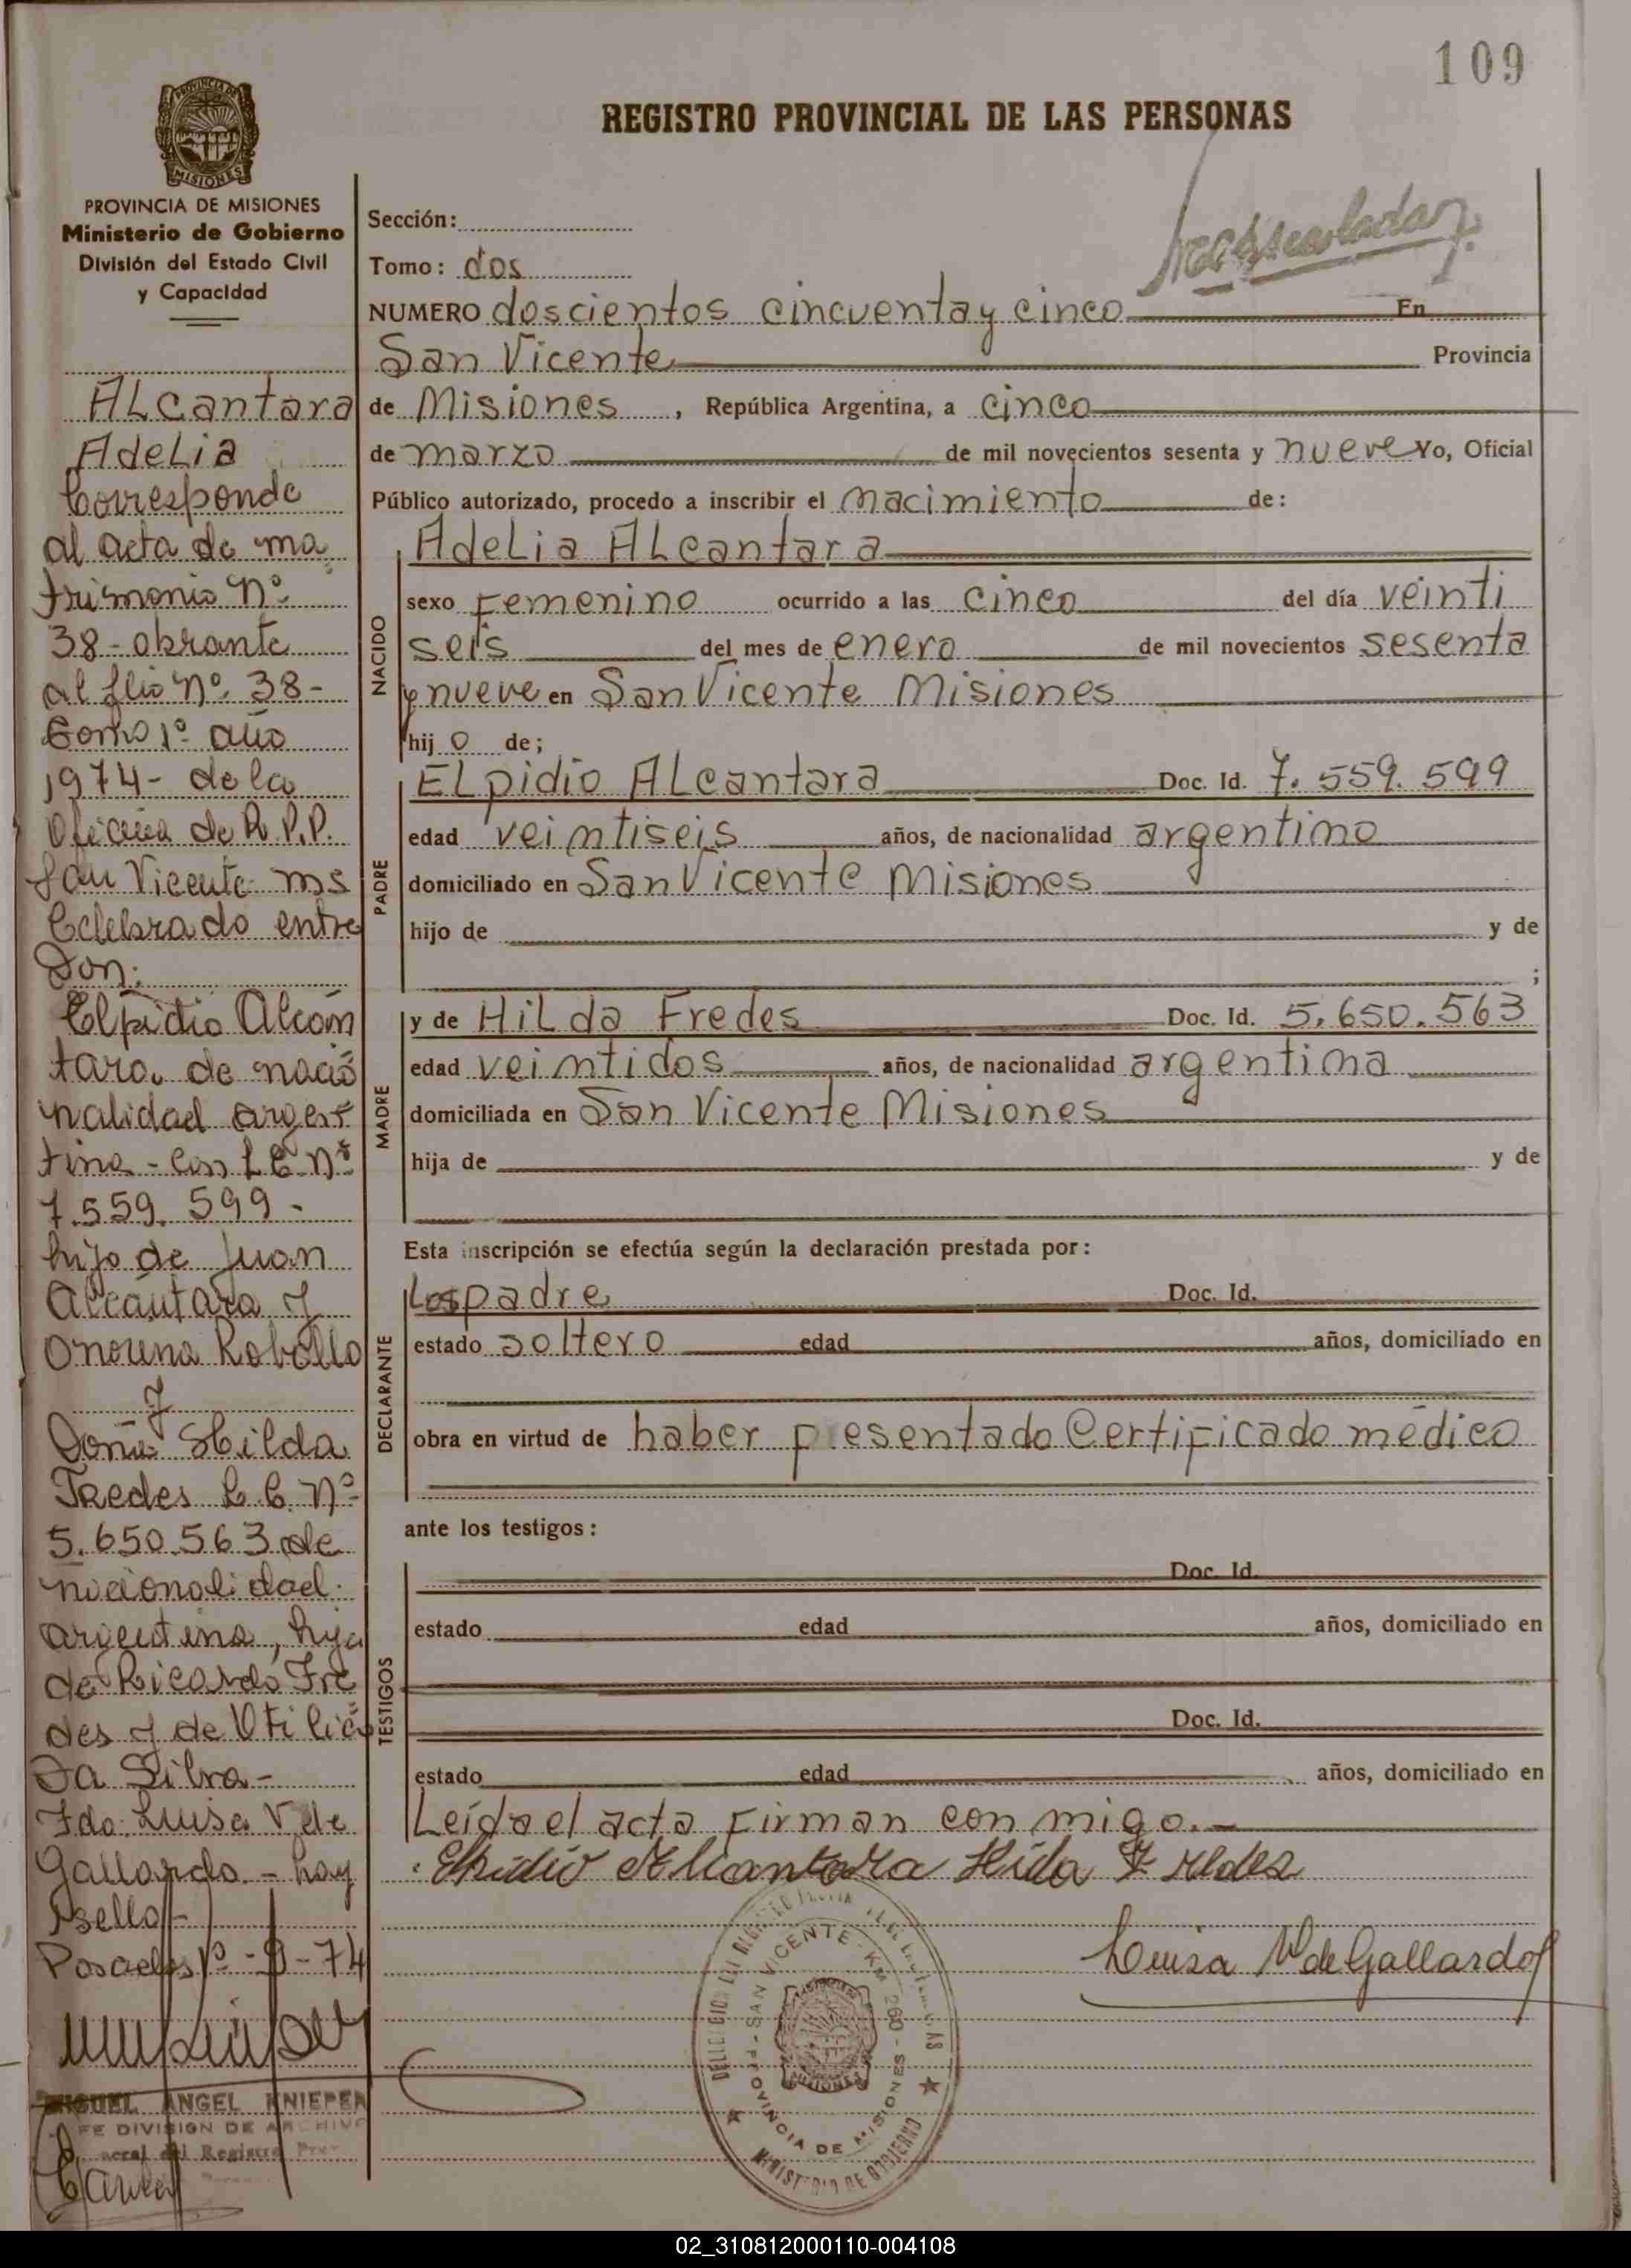 109
REGISTRO PROVINCIAL DE LAS PERSONAS
PROVINCIA DE
MISIONES
PROVINCIA DE MISIONES
Ministerio de Gobierno
División del Estado Civil
y Capacidad
ALcantara
AdeLia
Corresponde
al acta de ma
trimonio nº
38 - obrante
al flio nº 38 -
Tomo 1º año
1974 - de la
Oficina de R.P.P.
San Vicente ms
Celebrado entre
Don:
Elpidio Alcán
tara, de nacio
nalidad argen
tina - con L E Nº
7.559.599 -
hijo de Juan
Alcántara y
Onorina Robello
y
Doña Hilda
Fredes L.C. Nº
5.650.563 de
nacionalidad
argentina, hija
de Ricardo Fre
des y de Otilia
Da Silva -
Fdo: Luisa V. de
Gallardo. - hay
sello -
Posadas 1º - 9 - 74
MIGUEL ANGEL KNIEPER
FE DIVISION DE ARCHIVO
neral del Registro Prov
Sección:
Tomo: dos
NUMERO doscientos cincuenta y cinco En
San Vicente Provincia
de Misiones, República Argentina, a cinco
de marzo de mil novecientos sesenta y nueve Yo, Oficial
Público autorizado, procedo a inscribir el nacimiento de:
NACIDO
AdeLia ALcantara
sexo Femenino ocurrido a las cinco del día veinti
seis del mes de enero de mil novecientos sesenta
y nueve en San Vicente Misiones
hij o de;
PADRE
ELpidio ALcantara Doc. Id. 7.559.599
edad veintiseis años, de nacionalidad argentino
domiciliado en San Vicente Misiones
hijo de y de
;
MADRE
y de HiLda Fredes Doc. Id. 5.650.563
edad veintidos años, de nacionalidad argentina
domiciliada en San Vicente Misiones
hija de y de
Esta inscripción se efectúa según la declaración prestada por:
DECLARANTE
Los padre Doc. Id.
estado soltero edad años, domiciliado en
obra en virtud de haber presentado Certificado médico
ante los testigos:
TESTIGOS
Doc. Id.
estado edad años, domiciliado en
Doc. Id.
estado edad años, domiciliado en
Leída el acta Firman con migo. -
Elpidio Alcantara Hilda Fredes
Luisa V de Gallardo
SAN VICENTE - KM 260 -
PROVINCIA DE MISIONES
MINISTERIO DE GOBIERNO
MISIONES
02_310812000110-004108